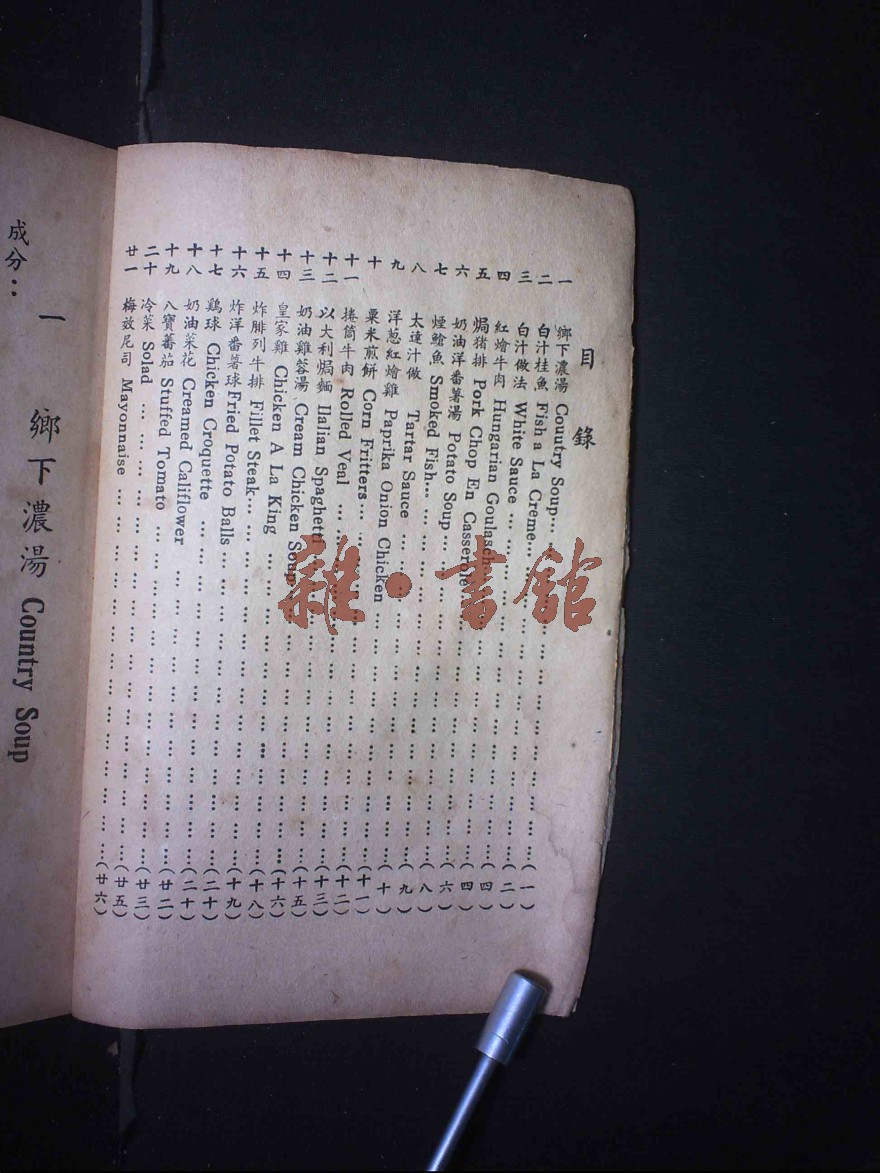 目錄
一 鄉下濃湯 Couutry Soup……(一)
二 白汁桂魚 Fish a La Creme……(二)
三 白汁做法 White Sauce……(四)
四 紅燴牛肉 Hungarian Goulasch……(四)
五 焗猪排 Pork Chop En Casserole……(六)
六 奶油洋番薯湯 Potato Soup……(八)
七 煙鯧魚 Smoked Fish……(九)
八 太達汁做 Tartar Sauce……(十)
九 洋葱紅燴雞 Paprika Onion Chicken……(十一)
十 粟米煎餅 Corn Fritters……(十二)
十一 捲筒牛肉 Rolled Veal……(十三)
十二 以大利焗麵 Ilalian Spaghetti……(十五)
十三 奶油雞蓉湯 Cream Chicken Soup……(十六)
十四 皇家雞 Chicken A La King……(十八)
十五 炸腓列牛排 Fillet Steak……(十九)
十六 炸洋番薯球 Fried Potato Balls……(二十)
十七 鷄球 Chicken Croquette……(二十)
十八 奶油菜花 Creamed Califlower……(廿二)
十九 八寶蕃茄 Stuffed Tomato……(廿三)
二十 冷菜 Solad……(廿五)
廿一 梅兹尼司 Mayonnaise……(廿六)
一 鄉下濃湯 Country Soup
成分：
雜·書舘